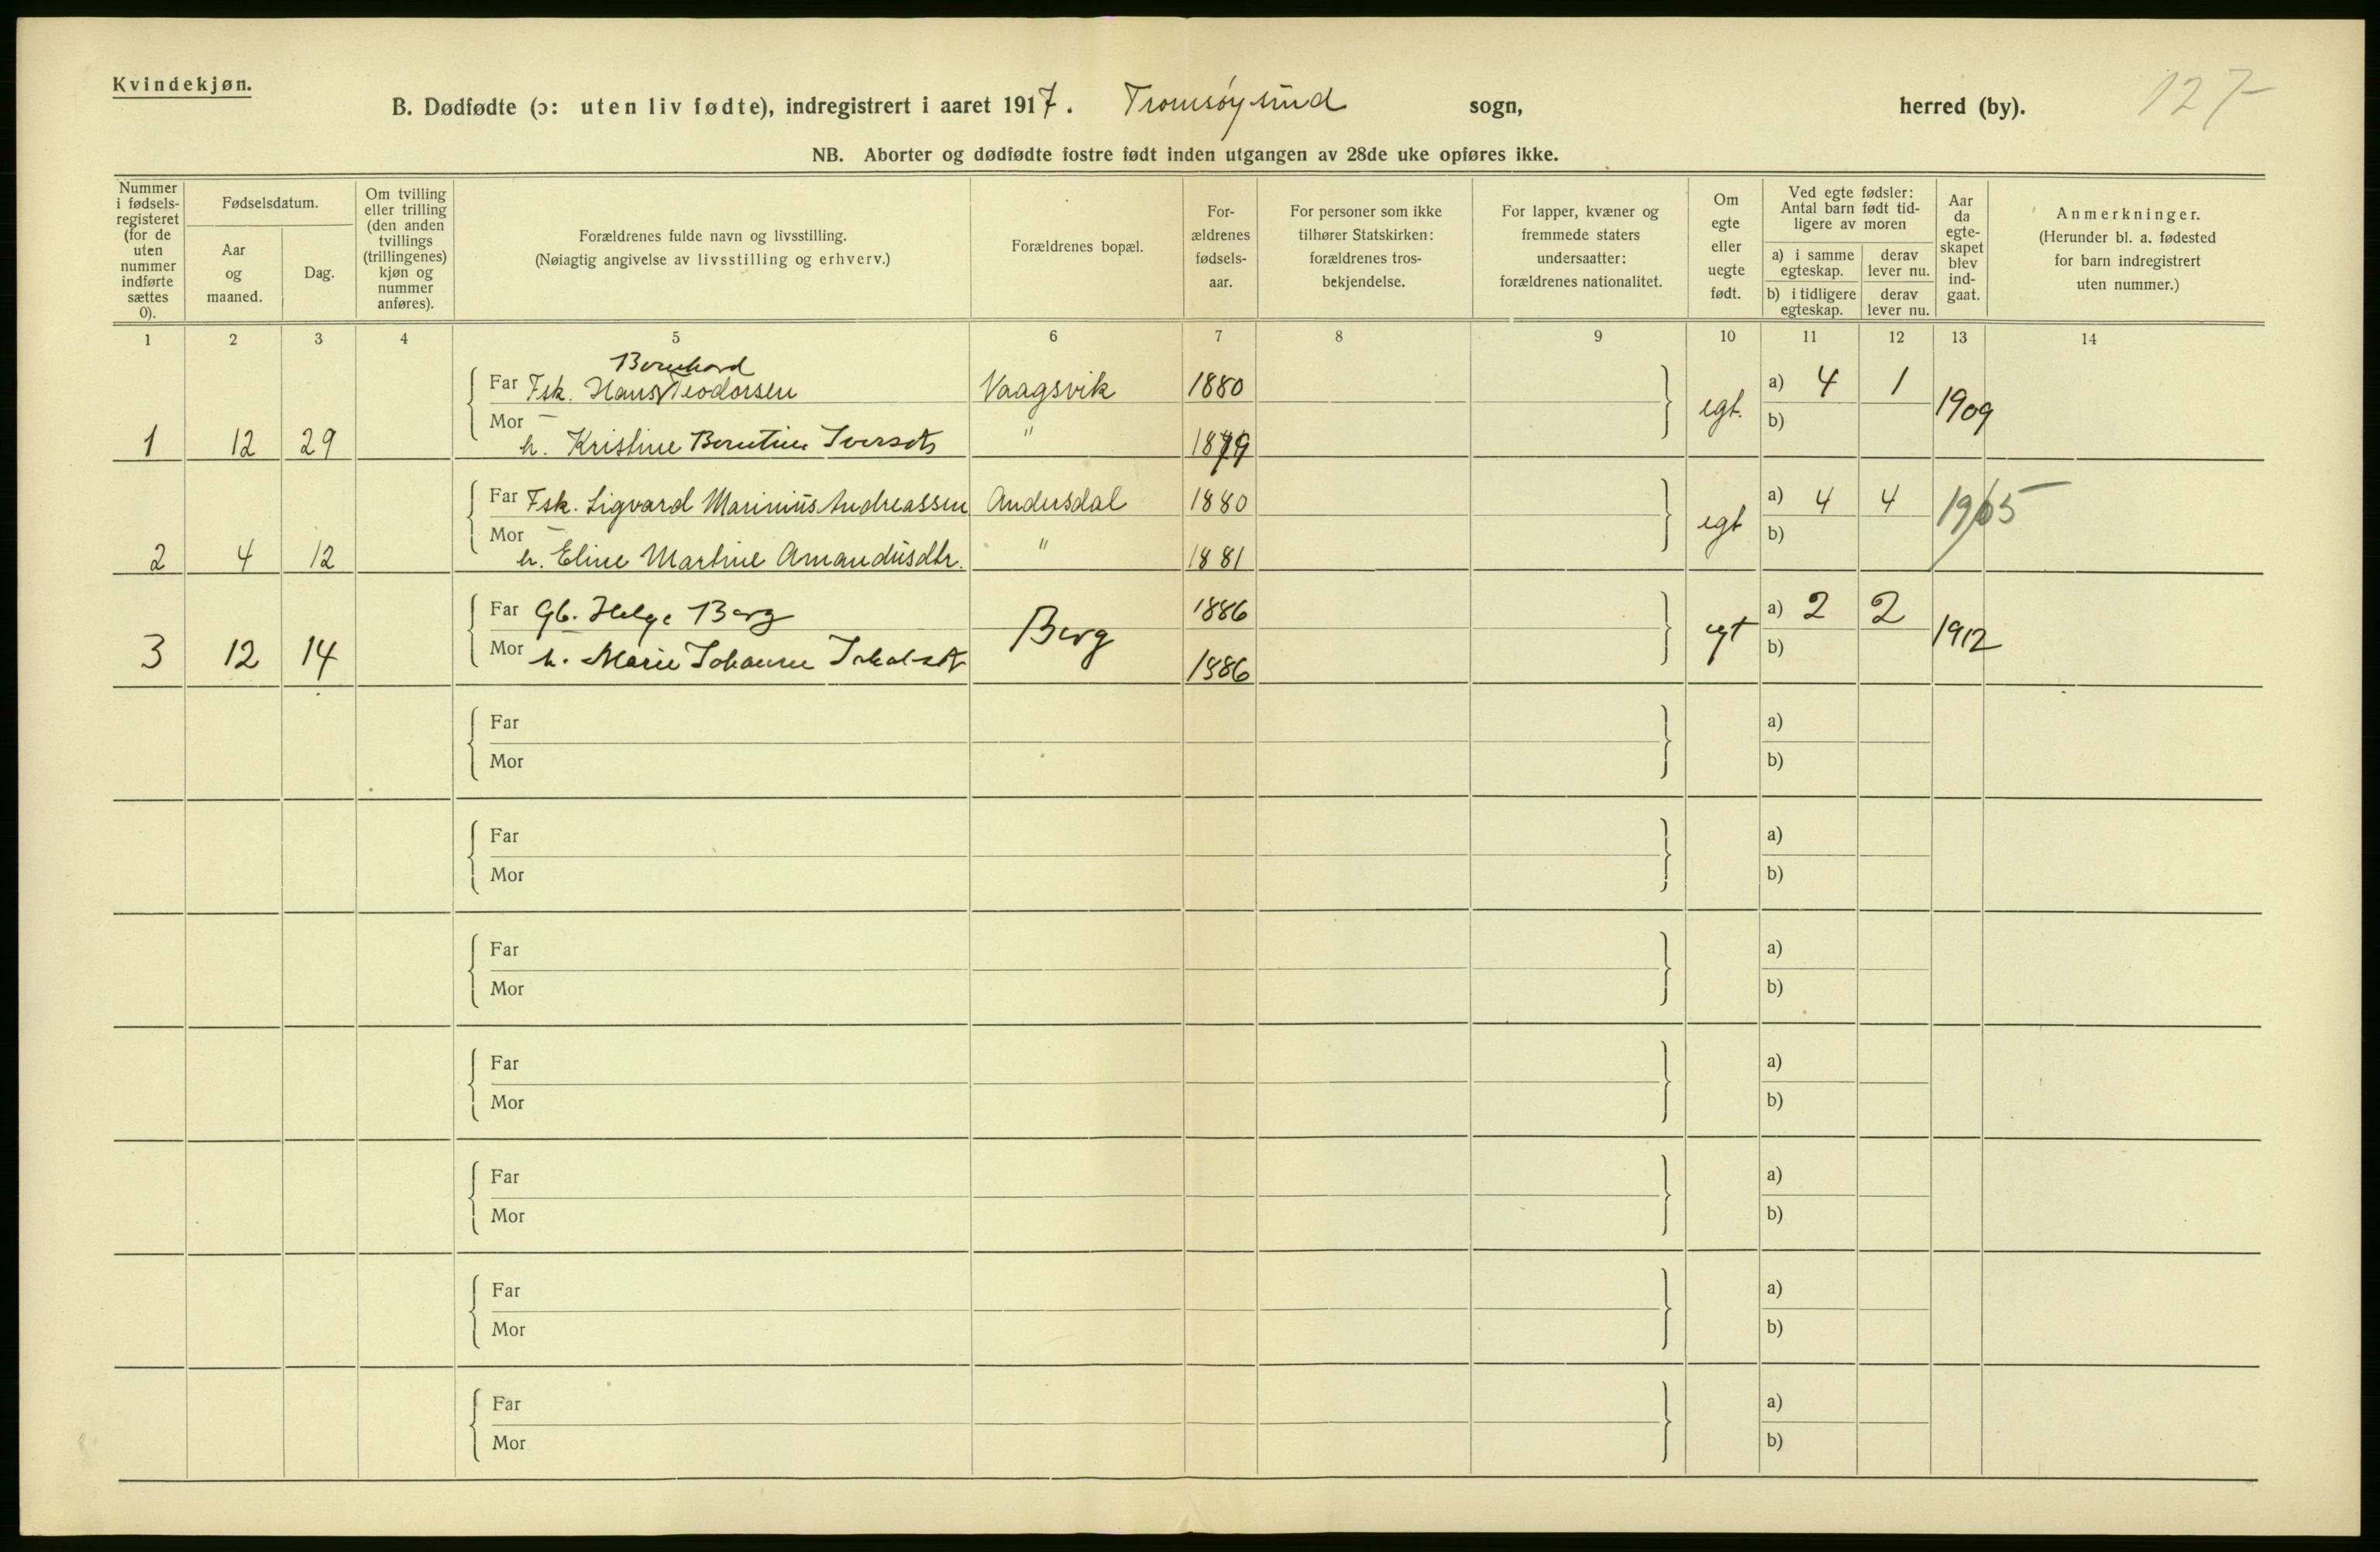 Kvindekjøn.
B. Dødfødte (ɔ: uten liv fødte), indregistrert i aaret 1917. Tromsøysund sogn, herred (by). 127
NB. Aborter og dødfødte fostre født inden utgangen av 28de uke opføres ikke.
Nummer i fødsels-registeret (for de uten nummer indførte sættes 0).
Fødselsdatum.
Aar og maaned.
Dag.
Om tvilling eller trilling (den anden tvillings (trillingenes) kjøn og nummer anføres).
Forældrenes fulde navn og livsstilling.
(Nøiagtig angivelse av livsstilling og erhverv.)
Forældrenes bopæl.
For-ældrenes fødsels-aar.
For personer som ikke tilhører Statskirken: forældrenes tros-bekjendelse.
For lapper, kvæner og fremmede staters undersaatter: forældrenes nationalitet.
Om egte eller uegte født.
Ved egte fødsler: Antal barn født tid-ligere av moren
a) i samme egteskap.
derav lever nu.
b) i tidligere egteskap.
derav lever nu.
Aar da egte-skapet blev ind-gaat.
Anmerkninger.
(Herunder bl. a. fødested for barn indregistrert uten nummer.)
1 2 3 4 5 6 7 8 9 10 11 12 13 14
Bernhard
Far Fsk. Hans Teodorsen Vaagsvik 1880 a) 4 1
1 12 29 Mor h. Kristine Berntine Iversdtr " 1879 egt. b) 1909
Far Fsk. Sigvard Marinius Andreassen Andersdal 1880 a) 4 4
2 4 12 Mor h. Eline Martine Amandusdtr. " 1881 egt b) 1905
Far Gb. Helge Berg 1886 a) 2 2
3 12 14 Mor h. Marie Johanne Berg 1886 egt b) 1912
Far a)
Mor b)
Far a)
Mor b)
Far a)
Mor b)
Far a)
Mor b)
Far a)
Mor b)
Far a)
Mor b)
Far a)
Mor b)